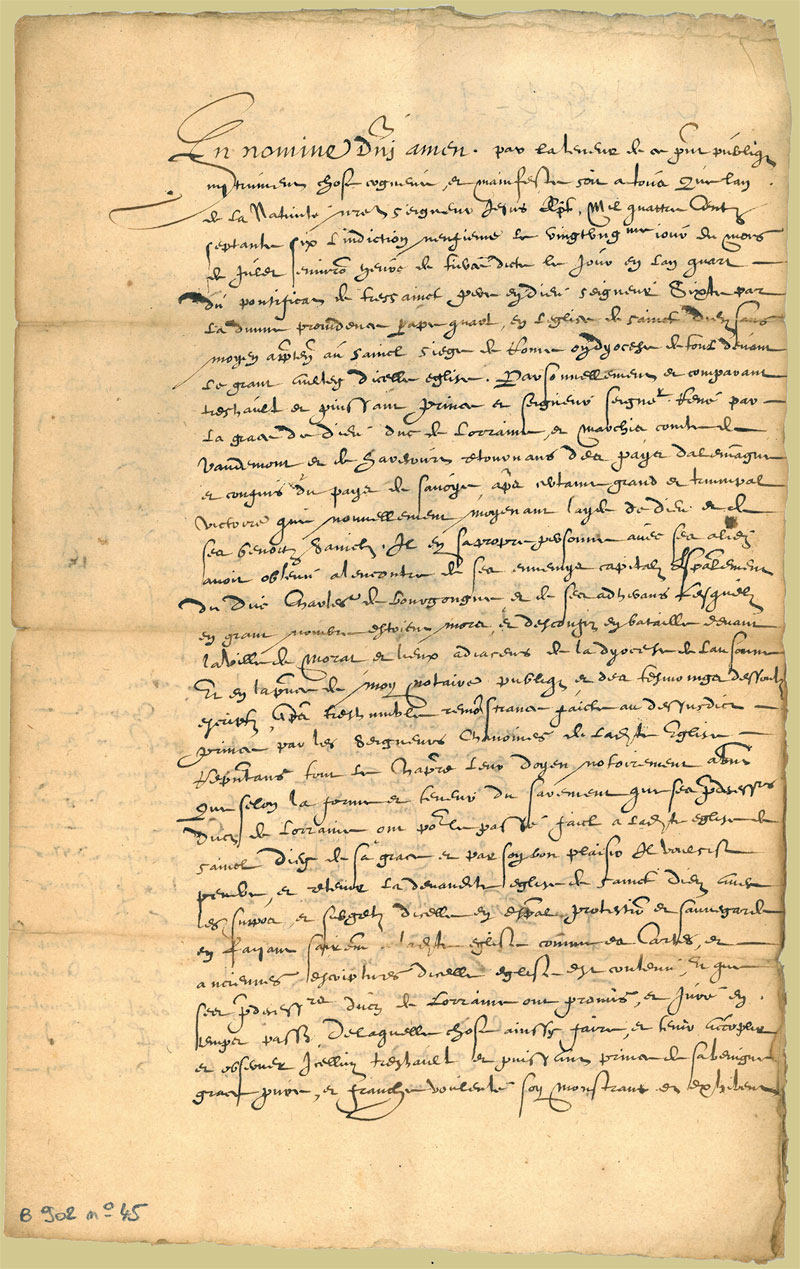 In nomine dnj amen. par la teneur de ce pnt publiq
instrument chose cogneue, et manifeste soit a tous Que lan
de la Natiuite nre seigneur Jesus Xpt, Mil quattre Centz
septante six Lindiction neufieme le vingtung me iour du mois
de Jullet enuiro heure de dicte le Jour en lan quart
du pontificat de tressainct pere en dieu seigneur Sixte par
la diuine prouidence Pape quart, en Leglise de sainct diey sans
moyen au sainct siege de Rome ou dyocese de toul deuant
le grant aultez dicelle eglise. Parsonnellement et comparant
treshault et puissant Prince et seigneur seigner René par
la grace de dieu duc de Lorraine, et Marchis comte de
Vaudemont et de retournans des payez dalemaigne
et conquis du payez de sauoye apres certaine grand et triumpal
victoire que nouuellement moyenant layde de dieu et de
ses benoitz Sainctz. Il en sa propre personne auec ses aliez
auoit obtenu alencontre de ses ennemys capitalz Espalement
du duc Charles de bourgongne et de ses adherans Lesquelz
en grant nombre estoient mors, et desconfiz en bataille deuant
la ville de Morat et lieux adiacens de la dyocese de Lausanne
Et en la pnce de moy notaire publiq et des tesmoings dessoubz
escriptz, Apres treshumble remostrance faicte au dessusdict
Prince par les Seigneurs Chanoines de Ladite Eglise
Repntans tout le Chapre leur doyen notoirement absent
Que selon la forme et teneur du sarement que ses pdecesses
ducz de Lorraine ont por le passé faict a Ladite eglise de
sainct Diey de sa grace et par son bon plaisir Il voulsist
pendre, et retenir La deuandite eglise de sainct diey auec
les suppos, et subgetz dicelle en espal protectio et sauuegarde
en fayant sarem a ladite eglise comme es Cartes, et
anciennes escriptures dicelle eglise est contenu, Et que
ses pdecess re ducz de Lorraine ont promis, et Juré en
temper passez, De laquelle chose ainssy faire, et tenir acoplir
et obseruer Icelluy treshault et puissant prince de sa benigne
grace pure, et franche voulenté soy monstrant et exhibent
B 902 n° 45